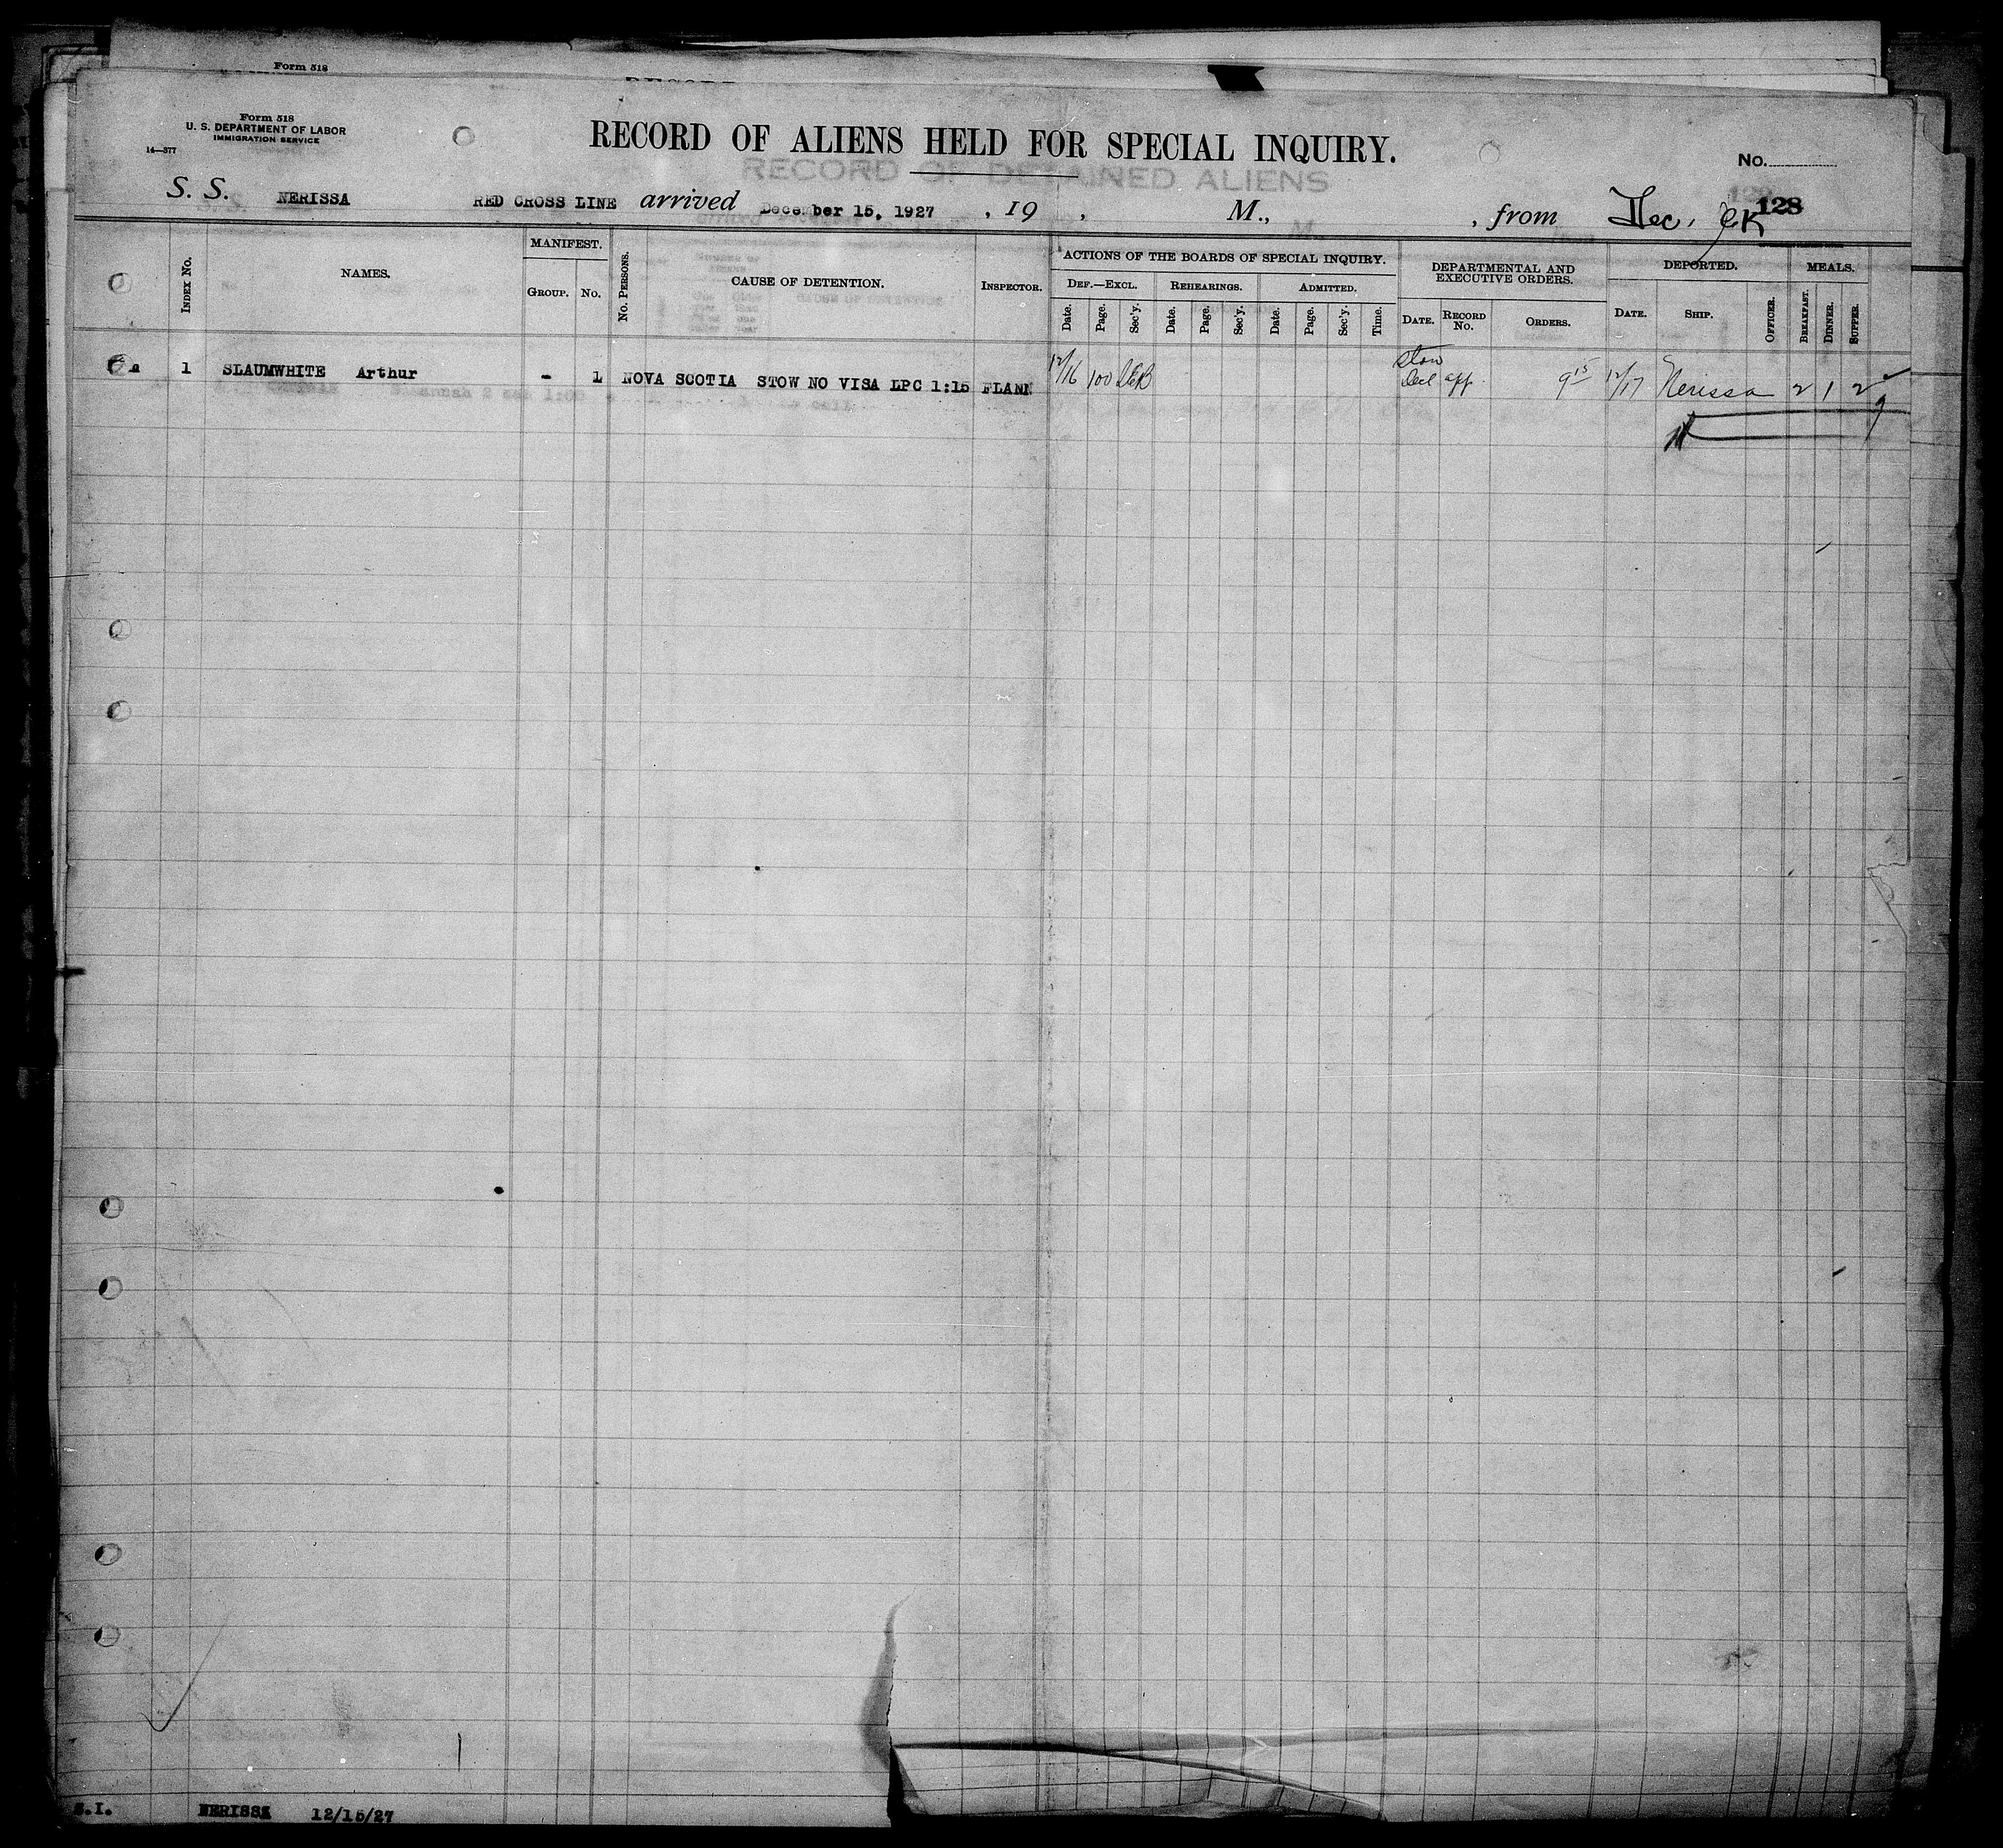 Form 518
Form 518
U. S. DEPARTMENT OF LABOR
IMMIGRATION SERVICE
14—377
RECORD OF ALIENS HELD FOR SPECIAL INQUIRY.
RECORD OF DETAINED ALIENS
No.
128
S. S. NERISSA RED CROSS LINE arrived December 15, 1927 , 19 , M., , from Dec.
Index No.
NAMES.
MANIFEST.
GROUP. No.
No. Persons.
CAUSE OF DETENTION.
INSPECTOR.
ACTIONS OF THE BOARDS OF SPECIAL INQUIRY.
DEF.—EXCL. REHEARINGS. ADMITTED.
Date. Page. Sec'y. Date. Page. Sec'y. Date. Page. Sec'y. Time.
DEPARTMENTAL AND
EXECUTIVE ORDERS.
DATE. RECORD No. ORDERS.
DEPORTED.
DATE. SHIP. OFFICER.
MEALS.
BREAKFAST. DINNER. SUPPER.
Stow
1 SLAUMWHITE Arthur - 1 NOVA SCOTIA STOW NO VISA LPC 1:15 FLANN 12/16 100 app. 9 15 12/17 Nerissa 2 1 2
S.I. NERISSA 12/15/27